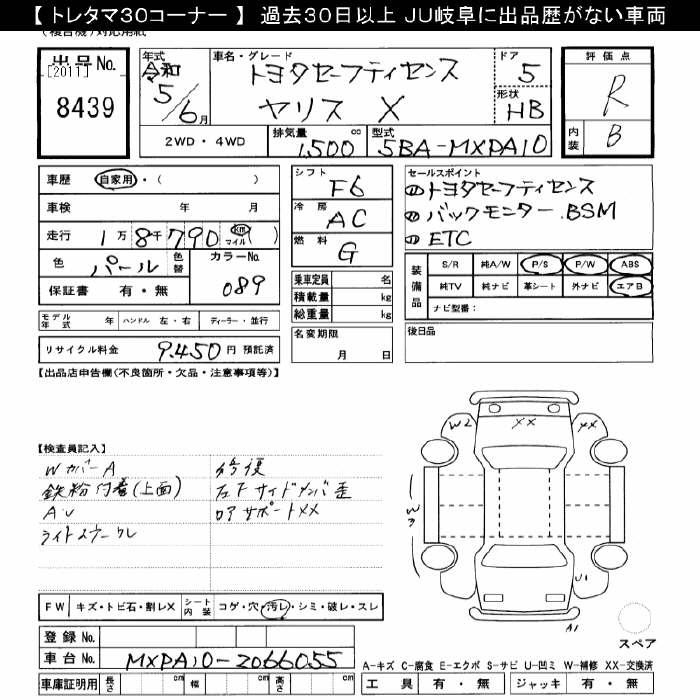 【 トレタマ30コーナー 】 過去30日以上 JU岐阜に出品歴がない車両
(複合機)対応用紙
出品No.
[2011]
8439
年式
令和
5/6月
車名・グレード
トヨタセーフティセンス
ヤリス X
ドア
5
形状
HB
2WD・4WD
排気量
1,500 cc
型式
5BA-MXPA10
評価点
R
内装
B
車歴 自家用・( )
車検 年 月
走行 1万8千790 km マイル ( )
色 パール 色替
カラーNo.
089
保証書 有・無
モデル年式 年 ハンドル 左・右 ディーラー・並行
リサイクル料金 9,450円 預託済
シフト
F6
冷房
AC
燃料
G
乗車定員 名
積載量 kg
総重量 kg
名変期限
月 日
セールスポイント
トヨタセーフティセンス
バックモニター.BSM
ETC
装備品
S/R 純A/W P/S P/W ABS
純TV 純ナビ 革シート 外ナビ エアB
ナビ型番:
後日品
【出品店申告欄(不良箇所・欠品・注意事項等)】
【検査員記入】
WカバーA
鉄粉付着(上面)
AU
修復
左下サイドメンバ歪
ロアサポートXX
W2
XX
XX
W3
U1
A1
スペア
FW キズ・トビ石・割レX シート内装 コゲ・穴・汚レ・シミ・破レ・スレ
登録No.
車台No. MXPA10-2066055
車庫証明用 長さ cm 幅 cm 高さ cm
A-キズ C-腐食 E-エクボ S-サビ U-凹ミ W-補修 XX-交換済
工具 有・無 ジャッキ 有・無